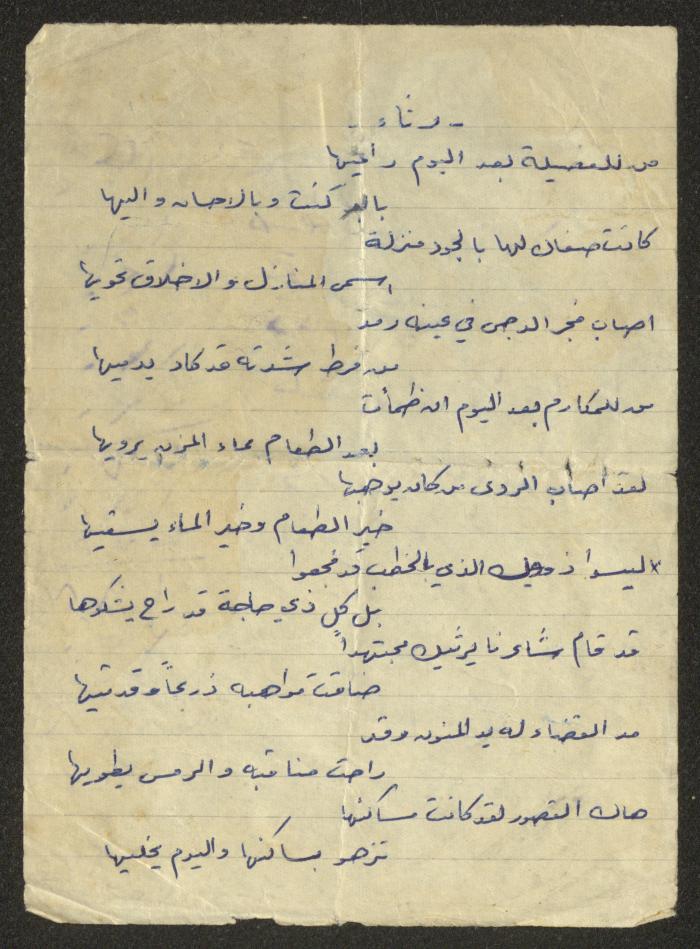 - رثاء -
من للفضيلة بعد اليوم راعيها
بالبر كنت وبالاحسان واليها
كانت صفاك لها بالجود منزلة
اسمى المنازل والاخلاق تحويها
اصاب فجر الدجى في عينه رمد
من فرط شدته قد كاد يدميها
من للمكارم بعد اليوم ان ظمأت
بعد الطعام بماء المزن يرويها
لقد اصاب الردى من كان يوهبها
خير الطعام وخير الماء يسقيها
x ليسوا ذويك الذي بالخطب قد فجعوا
بل كل ذي حاجة قد راح يشكوها
قد قام شاعرنا يرثيك مجتهداً
ضاقت مواهبه ذرعاً وقد تيها
مد القضاء له يد المنون وقد
راحت مناقبه والرمس يطويها
هاك القصور لقد كانت مساكنها
تزهو بساكنها واليوم يخليها